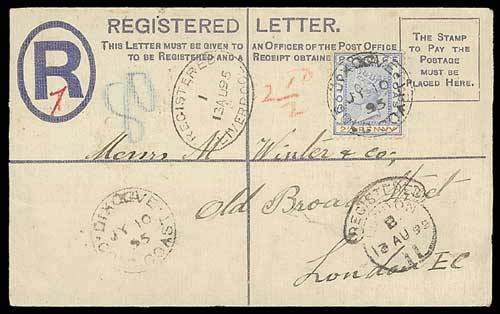 REGISTERED LETTER.
THIS LETTER MUST BE GIVEN TO AN OFFICER OF THE POST OFFICE
TO BE REGISTERED AND A RECEIPT OBTAINED
THE STAMP
TO PAY THE
POSTAGE
MUST BE
PLACED HERE.
R
REGISTERED
1
13AU95
LIVERPOOL
GOLD COAST
JY 10
95
PENNY
Messrs M Winter & Co,
Old Broad Street
London EC
DIXCOVE
JY 10
95
GOLD COAST
REGISTERED
LONDON
B
13 AU 95
11